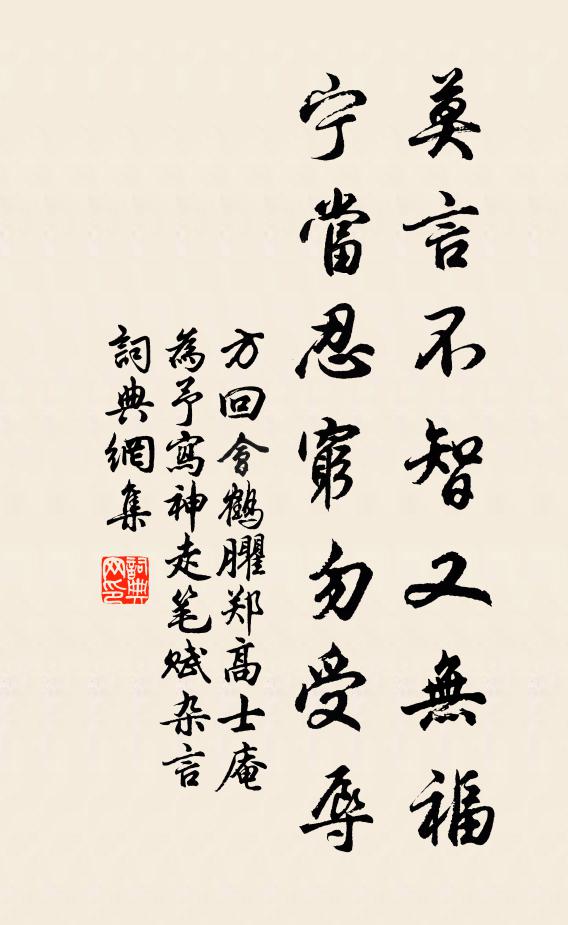 莫言不智又無福
宁當忍窮勿受辱
方回會鶴臞郑高士庵
為予寫神走笔赋杂言
詞典網集
詞典网印